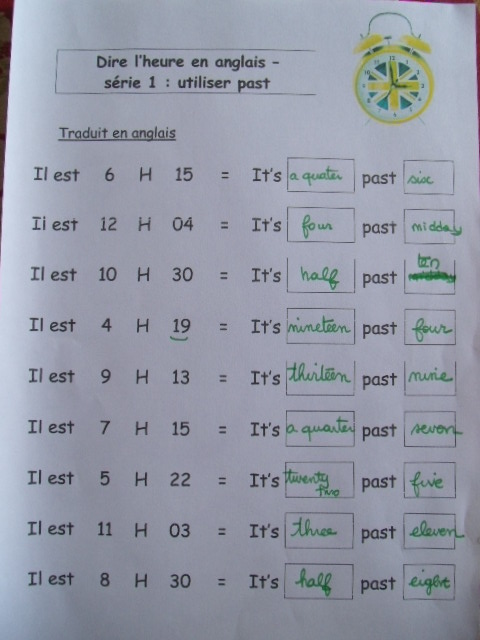 Dire l'heure en anglais –
série 1 : utiliser past
Traduit en anglais
Il est 6 H 15 = It's a quater past six
Ii est 12 H 04 = It's four past midday
Il est 10 H 30 = It's half past ten
Il est 4 H 19 = It's nineteen past four
Il est 9 H 13 = It's thirteen past nine
Il est 7 H 15 = It's a quarter past seven
Il est 5 H 22 = It's twenty two past five
Il est 11 H 03 = It's three past eleven
Il est 8 H 30 = It's half past eight